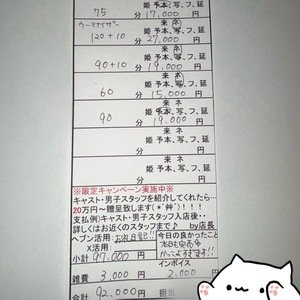 来 ネ
姫 予 本、写、フ、延
75 分 17,000 円
ウーマナイザー
来 ネ
姫 予 本、写、フ、延
120+10 分 27,000 円
来 ネ
姫 予 本、写、フ、延
90+10 分 19,000 円
来 ネ
姫 予 本、写、フ、延
60 分 15,000 円
来 ネ
姫 予 本、写、フ、延
90 分 19,000 円
来 ネ
姫 予 本、写、フ、延
分 円
来 ネ
姫 予 本、写、フ、延
分 円
※限定キャンペーン実施中※
キャスト・男子スタッフを紹介してくれたら…
20万円~贈呈致します(*艸`)!!!
支払例)キャスト・男子スタッフ入店後・・
詳しくはお近くのスタッフまで♪ by店長
ヘブン活用:お礼日記!!
X活用:
今日の良かったこと
本日も完売
小計 97,000 円
インボイス
雑費 3,000 円 2,000 円
合計 92,000 円 担